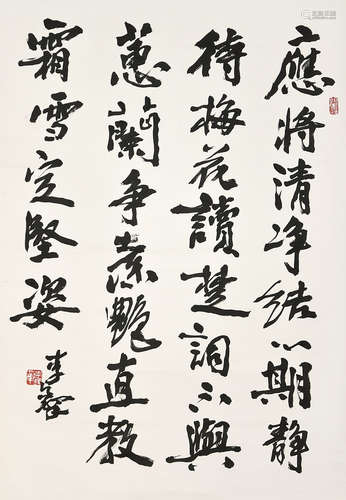 應將清净結心期靜
待梅花讀楚詞不與
蕙蘭爭素艷直教
霜雪定堅姿
李鐸